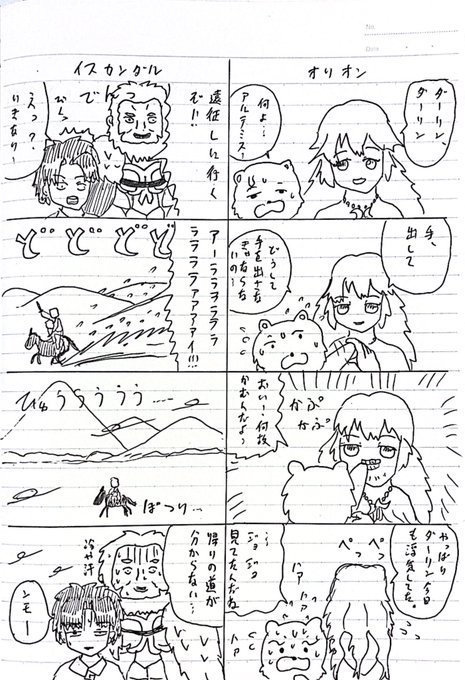 No.
Date
オリオン
ダーリン、
ダーリン
何よ…
アルテミス…
手、
出して
どうして
手を出さな
きゃならな
いの…
かぷ
かぷ
おい!何故
かむんだよぅ
やっぱり
ダーリン今日
も浮気したな。
ぺっ
ぺっ
ジョジョ
見てたんだね
ハァ
ハァ
ハァ
イスカンダル
遠征しに行く
ぞ!!
でっ
えっ?
いきなり〜
ど ど ど ど
アーララララララ
ララララァァァァイ!!!
ひゅううううう
ぽつり…
帰りの道が
分からない…
冷や汗
ンモー